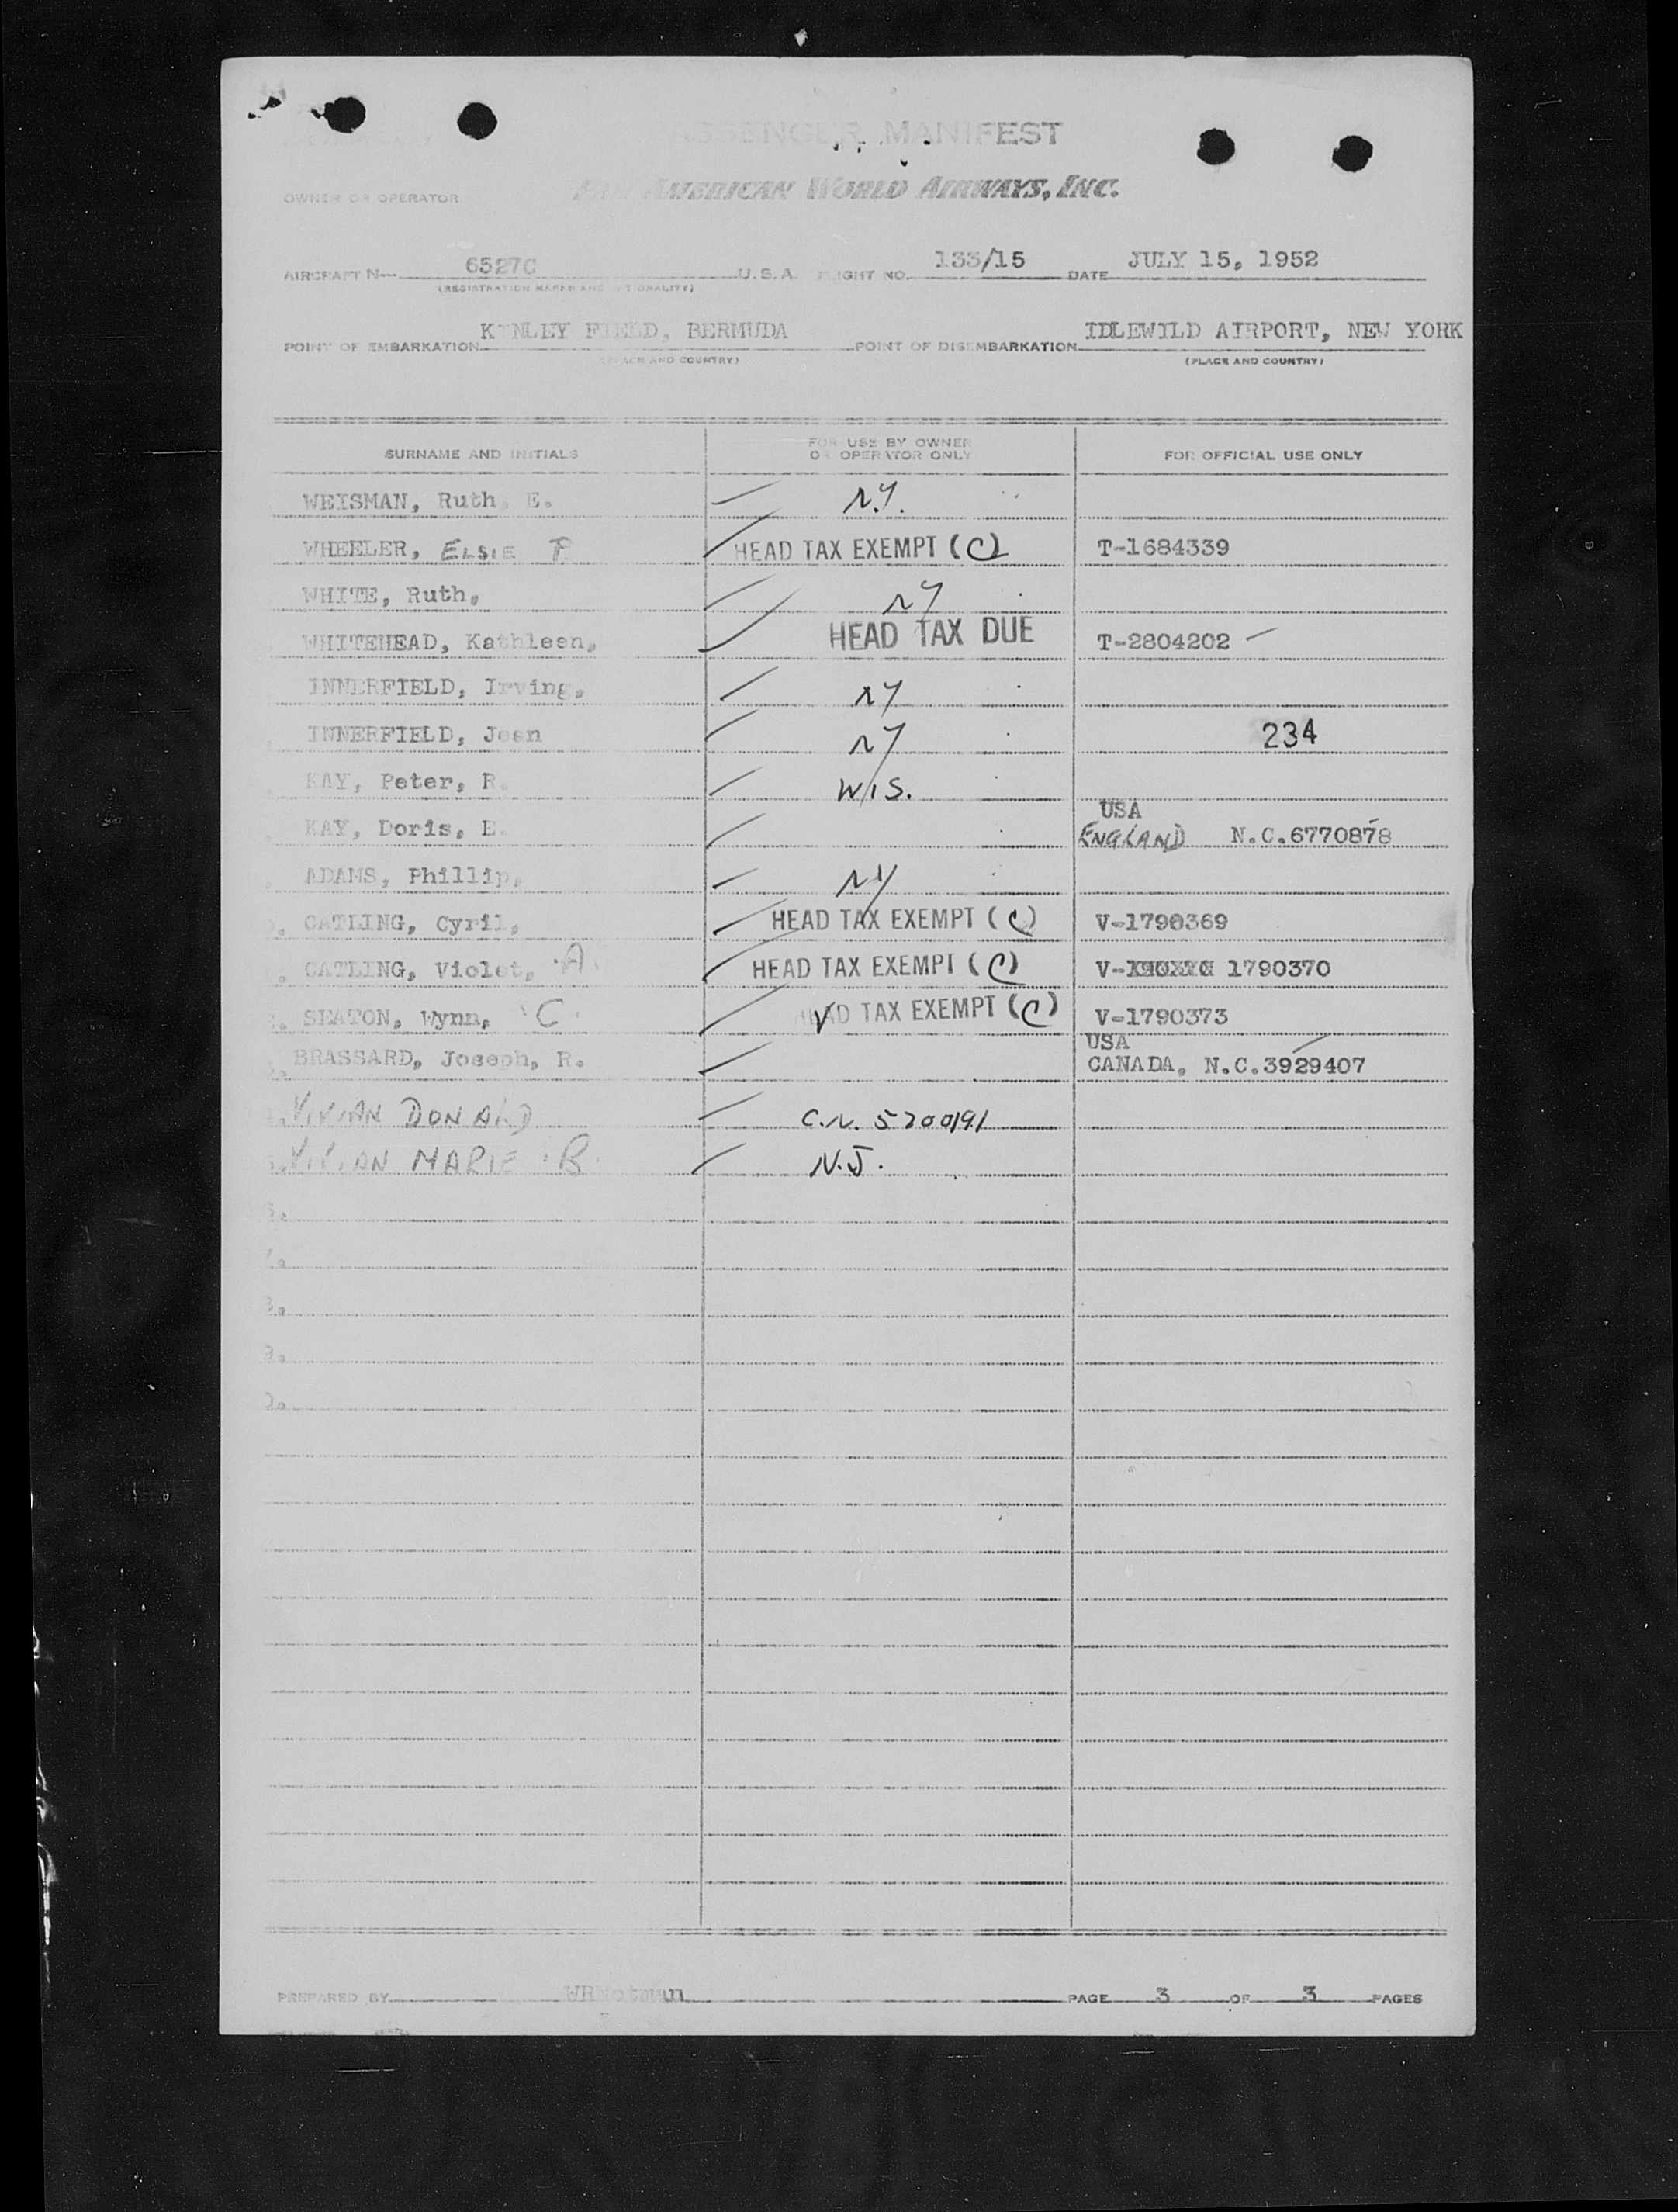 PASSENGER MANIFEST
OWNER OR OPERATOR PAN AMERICAN WORLD AIRWAYS, INC.
AIRCRAFT N— 6527C U.S.A. FLIGHT NO. 133/15 DATE JULY 15, 1952
(REGISTRATION MARKS AND NATIONALITY)
POINT OF EMBARKATION KINLEY FIELD, BERMUDA POINT OF DISEMBARKATION IDLEWILD AIRPORT, NEW YORK
(PLACE AND COUNTRY) (PLACE AND COUNTRY)
SURNAME AND INITIALS FOR USE BY OWNER OR OPERATOR ONLY FOR OFFICIAL USE ONLY
WEISMAN, Ruth, E. N.Y.
WHEELER, ELSIE P. HEAD TAX EXEMPT (C) T-1684339
WHITE, Ruth, NY
WHITEHEAD, Kathleen, HEAD TAX DUE T-2804202
INNERFIELD, Irving, NY
INNERFIELD, Jean NY 234
KAY, Peter, R. WIS.
USA
KAY, Doris, E. ENGLAND N.C.6770878
ADAMS, Phillip, NY
CATLING, Cyril, HEAD TAX EXEMPT (C) V-1790369
CATLING, Violet, A. HEAD TAX EXEMPT (C) V- 1790370
SEATON, Wynn, C. HEAD TAX EXEMPT (C) V-1790373
USA
BRASSARD, Joseph, R. CANADA, N.C.3929407
VIVIAN DONALD C.N. 5200191
VIVIAN MARIE B. N.J.
PREPARED BY WRNotman PAGE 3 OF 3 PAGES